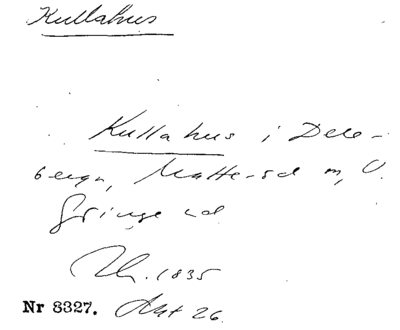 Kullahus
Kullahus i Dele-
bergn, Matte-sd m, V.
Gringe sd
Lh. 1835
Nr 8327. Akt 26.